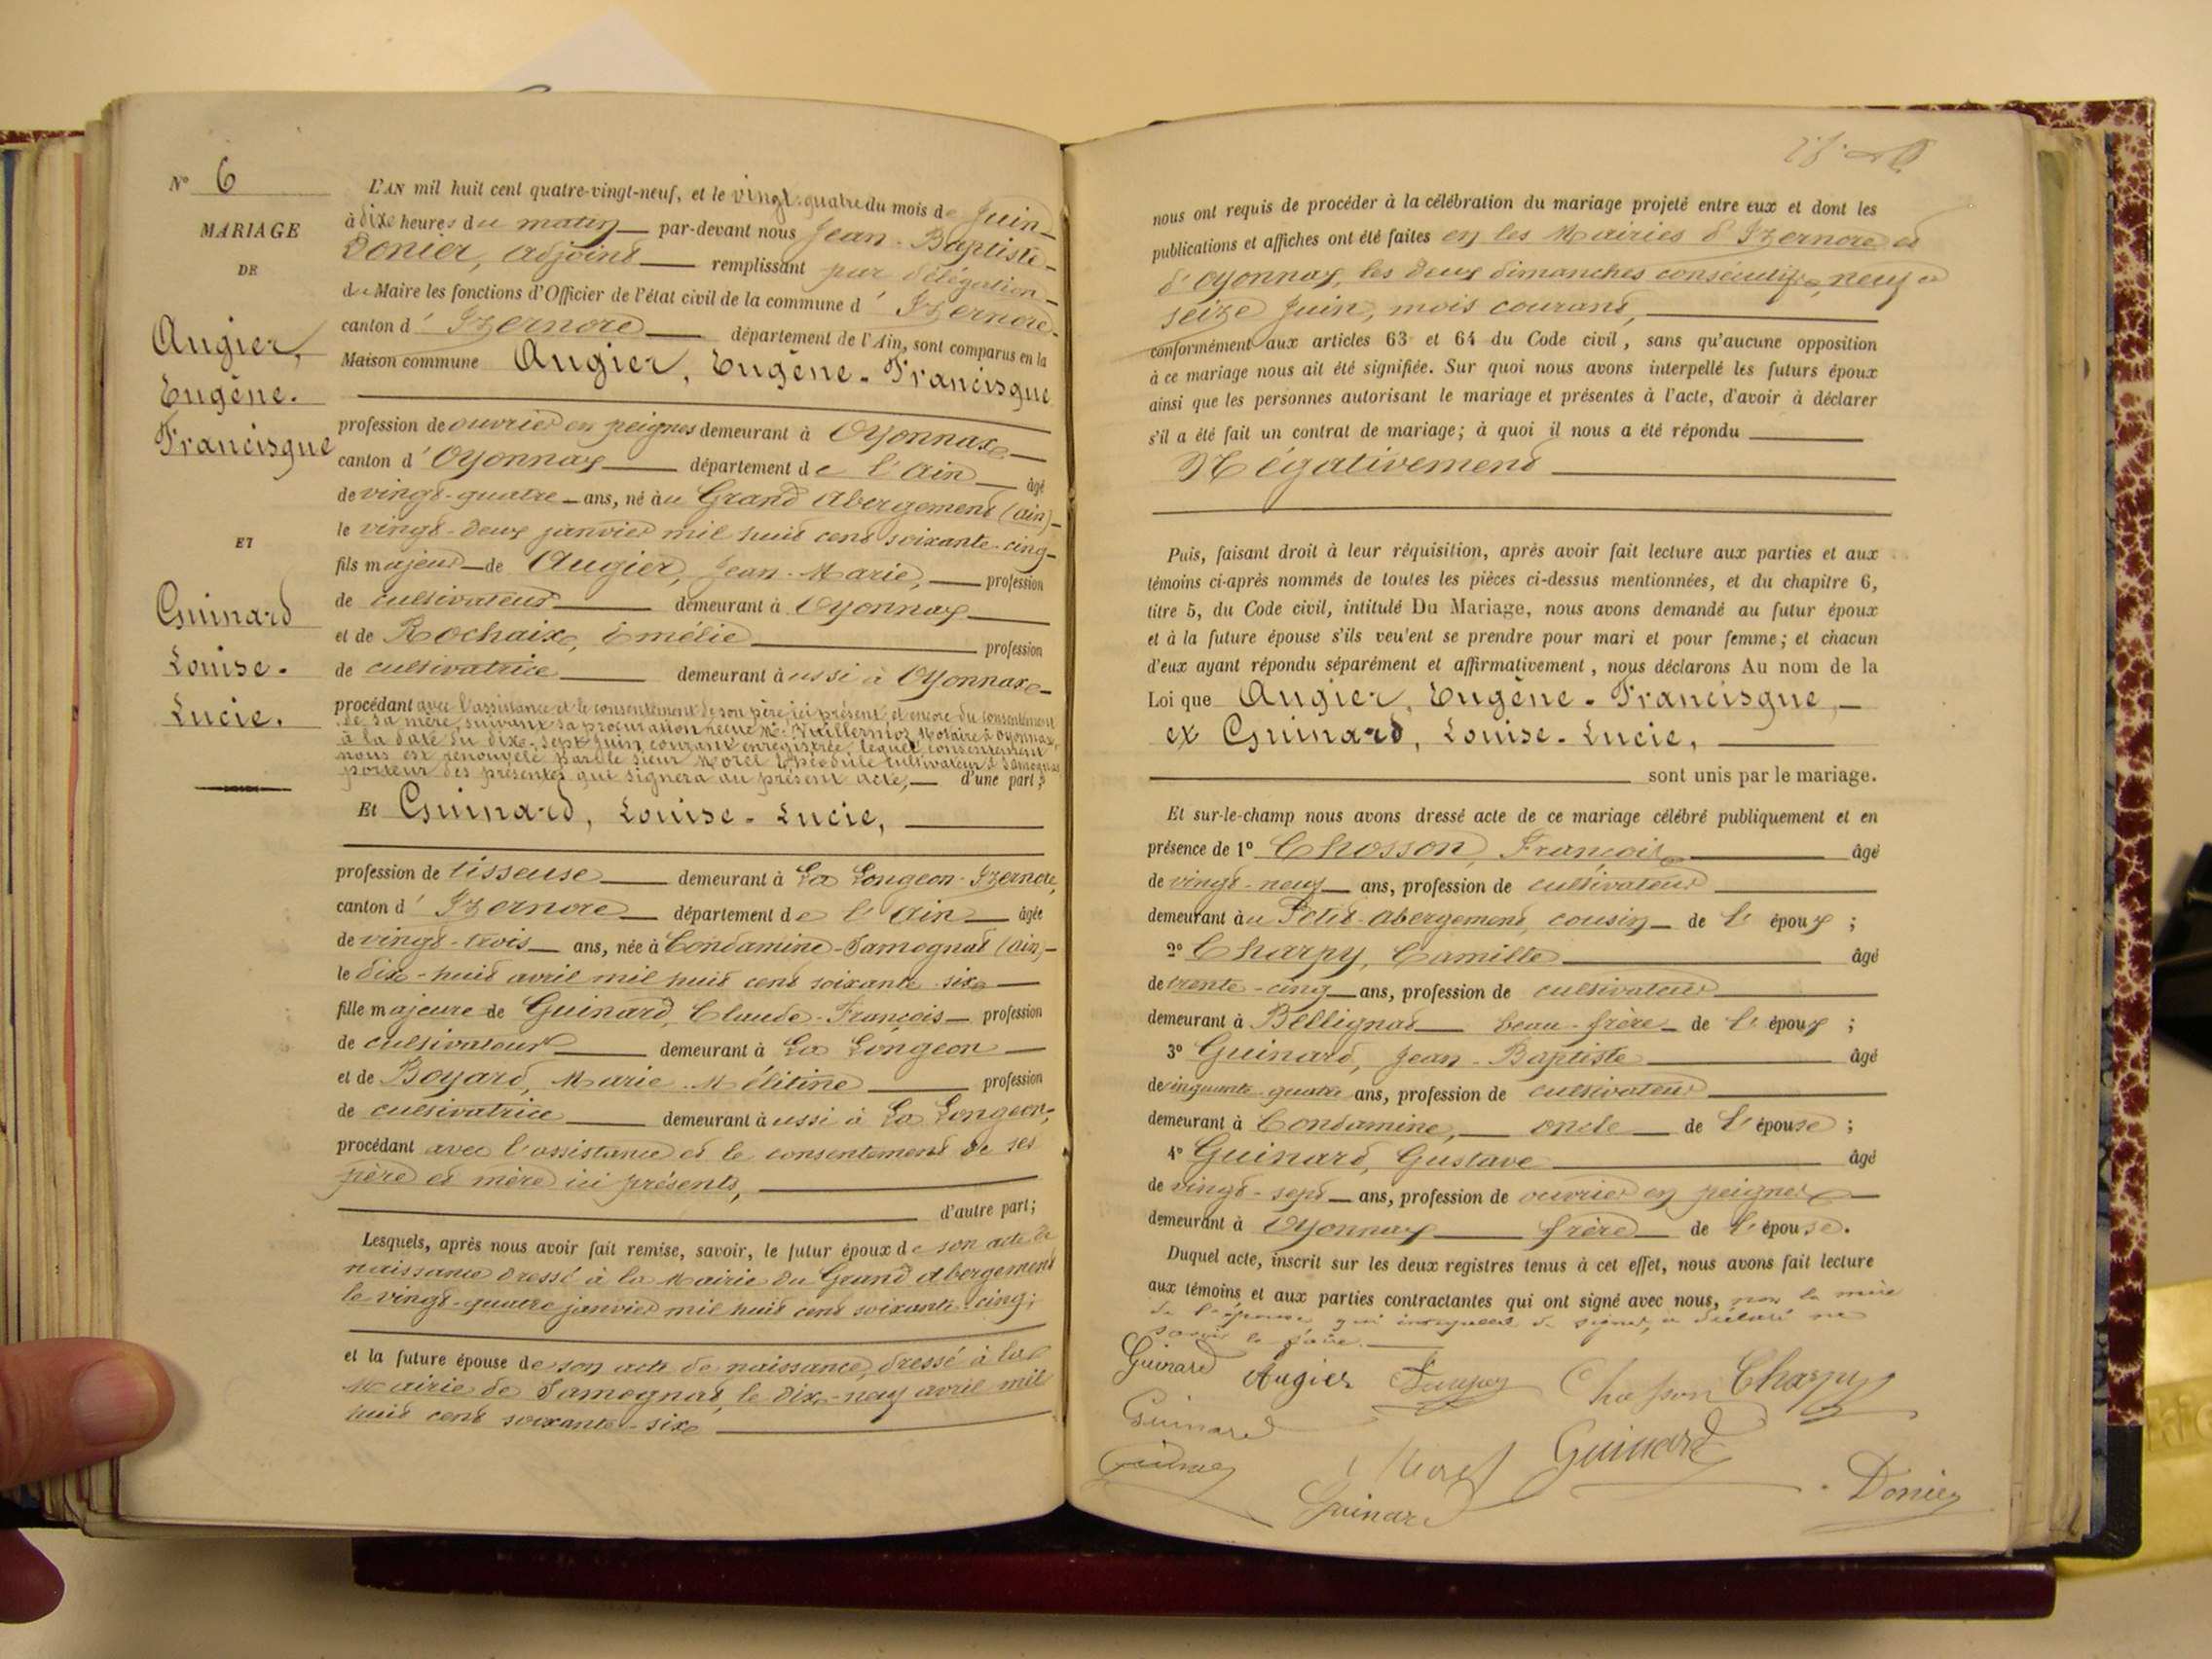 N° 6
MARIAGE
DE
Augier,
Eugène-
Francisque
ET
Guinard
Louise-
Lucie.
L'AN mil huit cent quatre-vingt-neuf, et le vingt-quatre du mois de Juin
à dix heures du matin par-devant nous Jean-Baptiste
Donier, adjoint remplissant par délégation
du Maire les fonctions d'Officier de l'état civil de la commune d'Izernore
canton d'Izernore département de l'Ain, sont comparus en la
Maison commune Augier, Eugène-Francisque
profession de ouvrier en peignes demeurant à Oyonnax
canton d'Oyonnax département de l'Ain âgé
de vingt-quatre ans, né au Grand Abergement (Ain)
le vingt-deux janvier mil huit cent soixante-cinq
fils majeur de Augier, Jean-Marie, profession
de cultivateur demeurant à Oyonnax
et de Rochaix, Emélie profession
de cultivatrice demeurant aussi à Oyonnax
procédant avec l'assistance et le consentement de son père, ici présent, et encore du consentement
de sa mère, suivant sa procuration reçue Me Vuillermoz Notaire à Oyonnax,
à la date du dix-sept juin courant enregistrée, lequel consentement
nous est renouvelé par le sieur Morel Théodule cultivateur à Samognat
porteur des présentes qui signera au présent acte, d'une part;
Et Guinard, Louise-Lucie,
profession de tisseuse demeurant à La Longeon-Izernore,
canton d'Izernore département de l'Ain âgée
de vingt-trois ans, née à Condamine-Samognat (Ain)
le dix-huit avril mil huit cent soixante-six
fille majeure de Guinard, Claude-François profession
de cultivateur demeurant à La Longeon
et de Boyard, Marie-Mélitine profession
de cultivatrice demeurant aussi à La Longeon,
procédant avec l'assistance et le consentement de ses
père et mère ici présents,
d'autre part;
Lesquels, après nous avoir fait remise, savoir, le futur époux de son acte de
naissance dressé à la Mairie du Grand Abergement
le vingt-quatre janvier mil huit cent soixante-cinq;
et la future épouse de son acte de naissance, dressé à la
Mairie de Samognat, le dix-neuf avril mil
huit cent soixante-six
nous ont requis de procéder à la célébration du mariage projeté entre eux et dont les
publications et affiches ont été faites en les Mairies d'Izernore et
d'Oyonnax, les deux dimanches consécutifs, neuf et
seize Juin, mois courant,
conformément aux articles 63 et 64 du Code civil, sans qu'aucune opposition
à ce mariage nous ait été signifiée. Sur quoi nous avons interpellé les futurs époux
ainsi que les personnes autorisant le mariage et présentes à l'acte, d'avoir à déclarer
s'il a été fait un contrat de mariage; à quoi il nous a été répondu
Négativement
Puis, faisant droit à leur réquisition, après avoir fait lecture aux parties et aux
témoins ci-après nommés de toutes les pièces ci-dessus mentionnées, et du chapitre 6,
titre 5, du Code civil, intitulé Du Mariage, nous avons demandé au futur époux
et à la future épouse s'ils veulent se prendre pour mari et pour femme; et chacun
d'eux ayant répondu séparément et affirmativement, nous déclarons Au nom de la
Loi que Augier, Eugène-Francisque,
et Guinard, Louise-Lucie,
sont unis par le mariage.
Et sur-le-champ nous avons dressé acte de ce mariage célébré publiquement et en
présence de 1° Chosson, François âgé
de vingt-neuf ans, profession de cultivateur
demeurant au Petit-Abergement, cousin de l'époux;
2° Charpy, Camille âgé
de trente-cinq ans, profession de cultivateur
demeurant à Bellignat beau-frère de l'époux;
3° Guinard, Jean-Baptiste âgé
de cinquante-quatre ans, profession de cultivateur
demeurant à Condamine, oncle de l'épouse;
4° Guinard, Gustave âgé
de vingt-sept ans, profession de ouvrier en peignes
demeurant à Oyonnax frère de l'épouse.
Duquel acte, inscrit sur les deux registres tenus à cet effet, nous avons fait lecture
aux témoins et aux parties contractantes qui ont signé avec nous, non la mère
de l'épouse qui interpellée de signer, a déclaré ne
savoir le faire.
Guinard Augier Chosson Charpy
Guinard
Morel Guinard
Guinard Donier